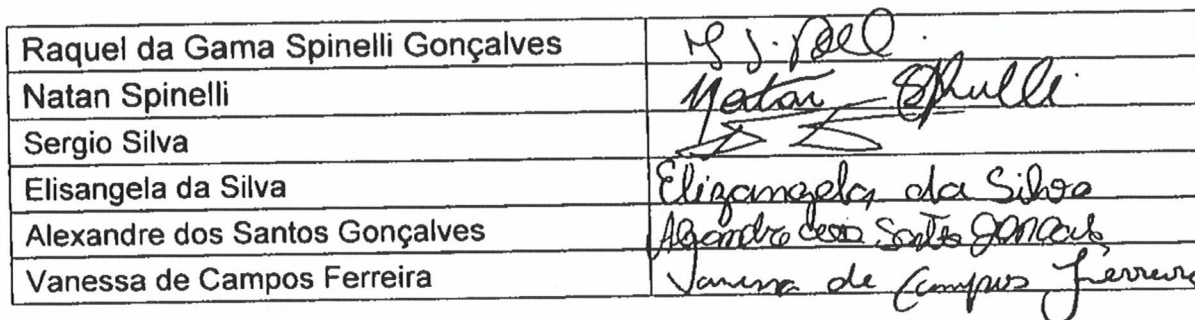 Raquel da Gama Spinelli Gonçalves
Natan Spinelli Natan
Sergio Silva
Elisangela da Silva Elizangela da Silva
Alexandre dos Santos Gonçalves
Vanessa de Campos Ferreira Vanessa de Campos Ferreira